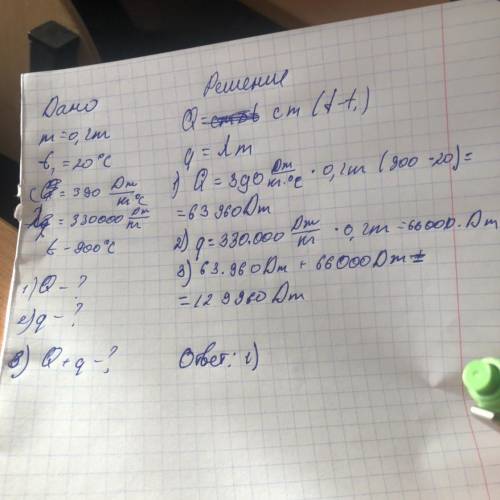 Дано
m = 0,2т
t₁ = 20°C
c = 390 Дж/кг°C
λ = 330000 Дж/кг
t - 900°C
1) Q - ?
2) q - ?
3) Q + q - ?
Решение
Q = cm (t - t₁)
q = λm
1) Q = 390 Дж/кг·°C · 0,2т (900 - 20) =
= 63960Дж
2) q = 330.000 Дж/кг · 0,2т = 66000.Дж
3) 63.960Дж + 66000Дж =
= 129960 Дж
Ответ: 1)